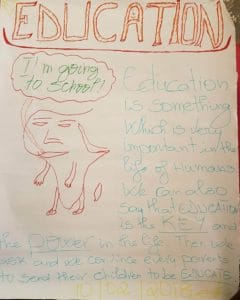 EDUCATION
I'm going
to school!
Education
is something
Which is very
important in the
life of Humans
We can also
say that EDUCATION
is the KEY and
the Power in the life. Then we
ask and we convince every parents
to send their children to be EDUCATE.